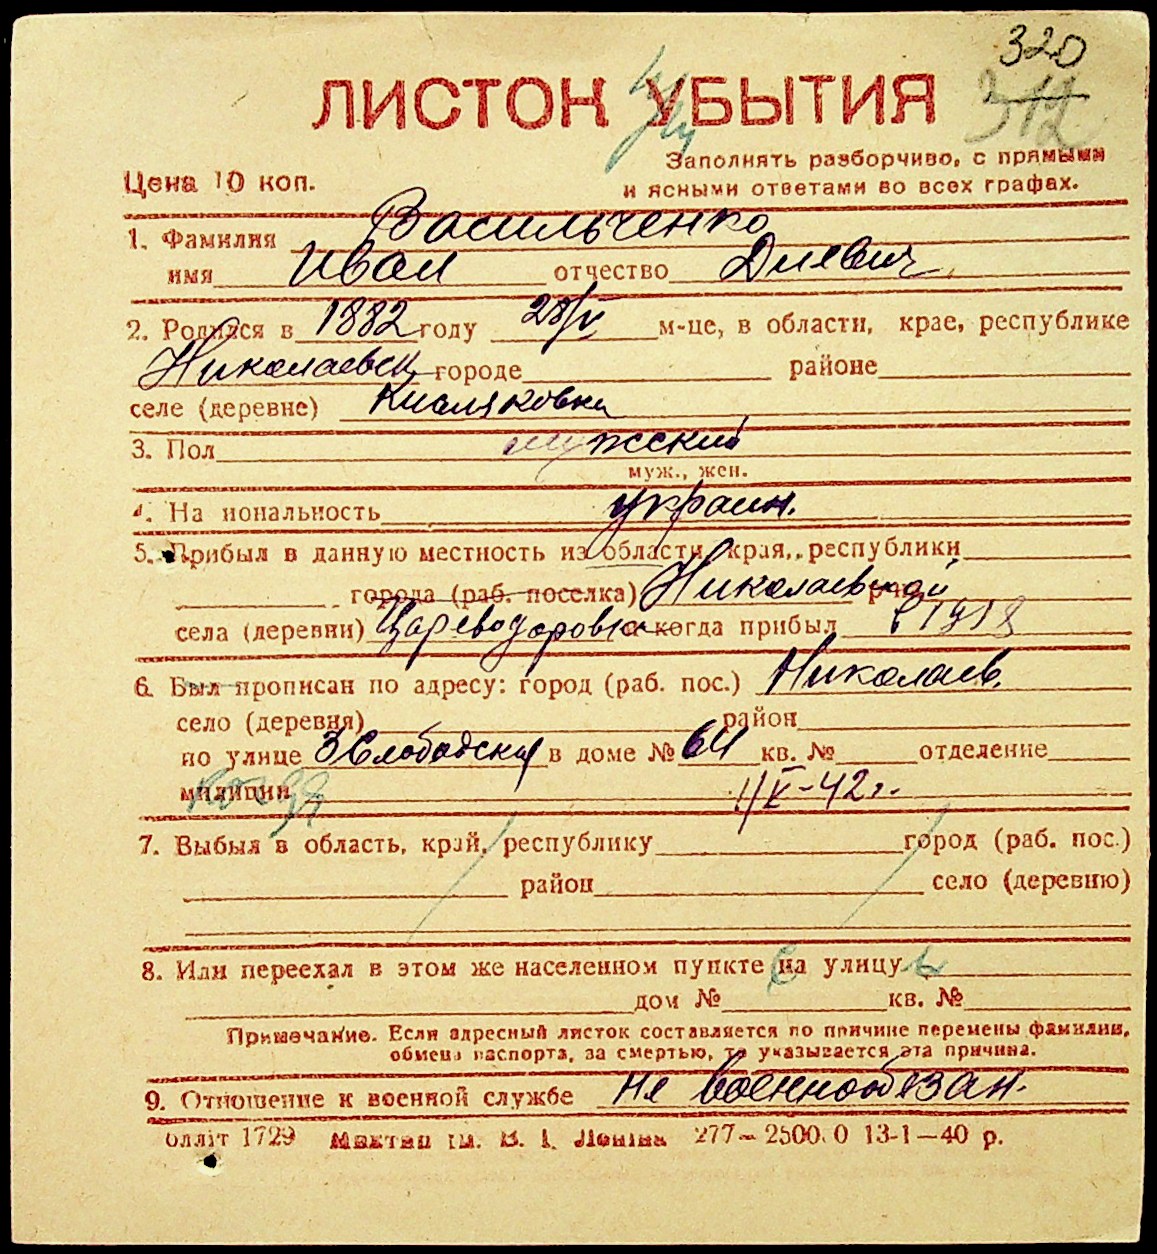 320
312
ЛИСТОК УБЫТИЯ
Цена 10 коп.
Заполнять разборчиво, с прямыми
и ясными ответами во всех графах.
1. Фамилия Васильченко
имя Иван отчество
2. Родился в 1882 году 28/V м-це, в области, крае, республике
Николаевск городе районе
селе (деревне)
3. Пол мужский
муж., жен.
4. На иональность украин.
5. Прибыл в данную местность из области, края, республики
города (раб. поселка) Николаевской
села (деревни) и когда прибыл в
6. Был прописан по адресу: город (раб. пос.) Николаев.
село (деревня) район
по улице 3 Слободская в доме № 64 кв. № отделение
милиции 1/V-42г.
7. Выбыл в область, край, республику город (раб. пос.)
район село (деревню)
8. Или переехал в этом же населенном пункте на улицу
дом № кв. №
Примечание. Если адресный листок составляется по причине перемены фамилии,
обмена паспорта, за смертью, то указывается эта причина.
9. Отношение к военной службе не военнообязан.
облліт 1729 І. Леніна 277—2500.0 13-1—40 р.